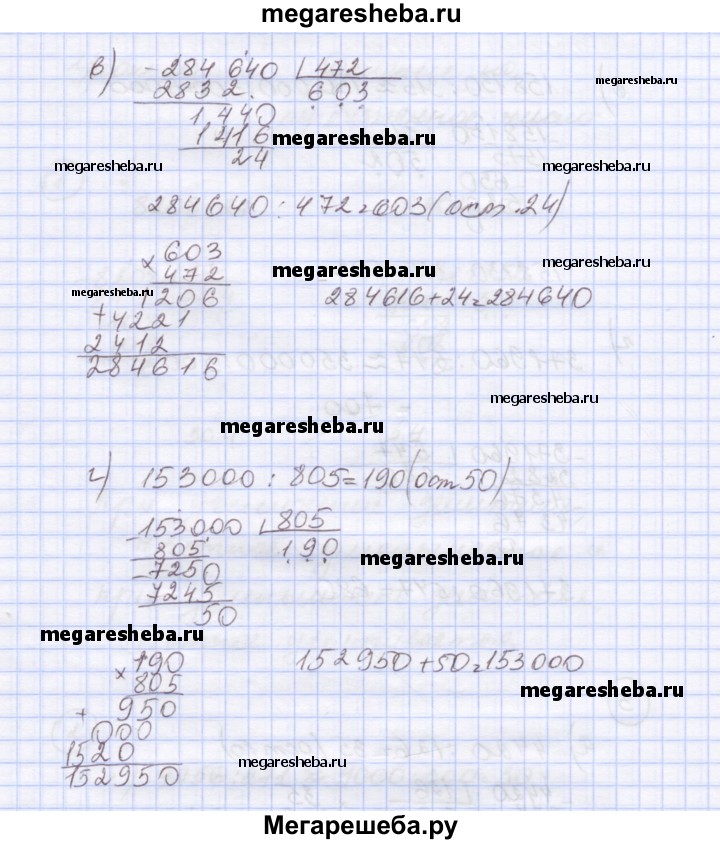 megaresheba.ru
в) -284 640 | 472
megaresheba.ru
2832. 603
1440
megaresheba.ru
1416
24
megaresheba.ru
megaresheba.ru
284640 : 472 = 603 (ост. 24)
× 603
472
megaresheba.ru
megaresheba.ru
1206
284616 + 24 = 284640
+ 4221
2412
284616
megaresheba.ru
megaresheba.ru
г) 153000 : 805 = 190 (ост 50)
-153000 | 805
805 190
megaresheba.ru
-7250
7245
50
megaresheba.ru
× 190
805
152950 + 50 = 153000
megaresheba.ru
+ 950
000
1520
megaresheba.ru
152950
Мегарешеба.ру